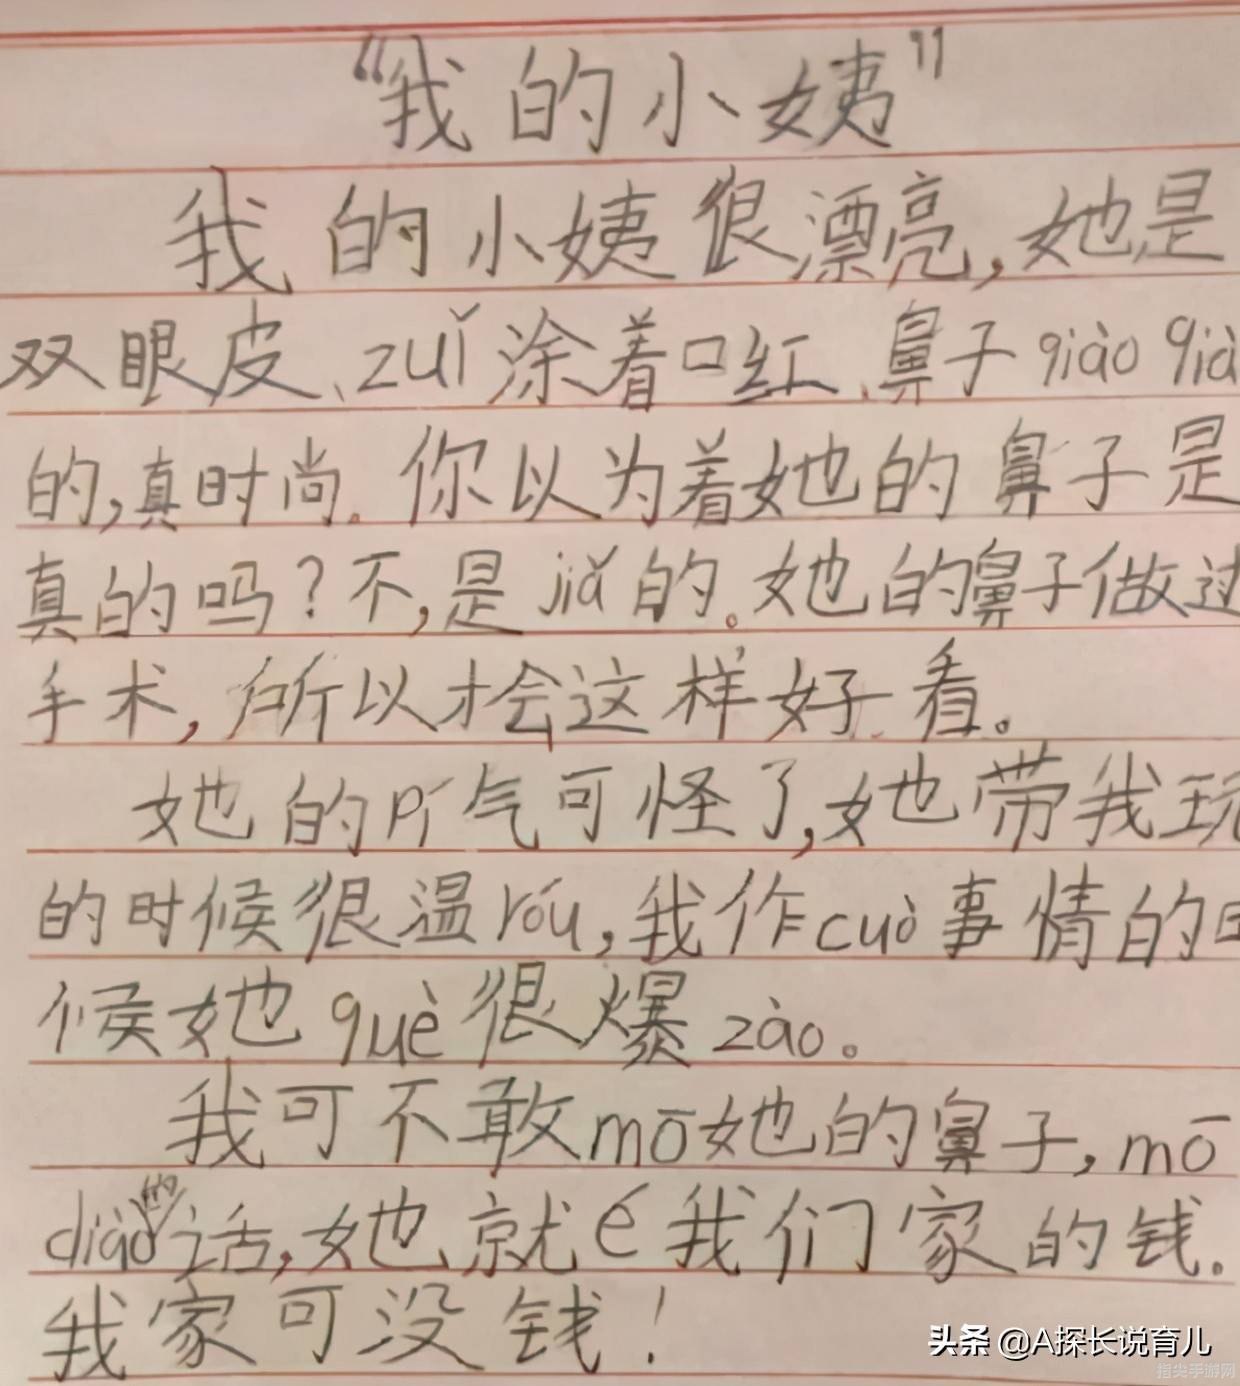 “我的小姨”
我的小姨很漂亮,她是
双眼皮、zuǐ涂着口红、鼻子qiào qià
的,真时尚。你以为着她的鼻子是
真的吗?不,是jiǎ的。她的鼻子做过
手术,所以才会这样好看。
她的pí气可怪了,她带我玩
的时候很温róu,我作cuò事情的
候她què很爆zào。
我可不敢mō她的鼻子,mō
diào的话,她就é我们家的钱.
我家可没钱!
头条 @A探长说育儿
指尖手游网